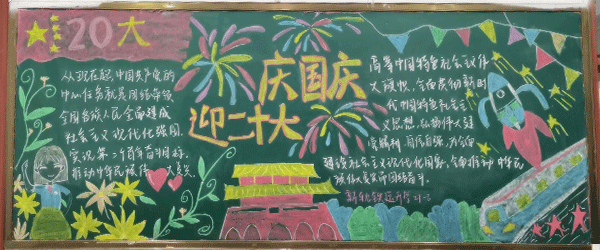 20大
从现在起,中国共产党的
中心任务就是团结带领
全国各族人民全面建成
社会主义现代化强国,
实现第二个百年奋斗目标,
推动中华民族伟
庆国庆
迎二十大
高举中国特色社会主义伟
大旗帜,全面贯彻新时
代中国特色社会主
义思想,弘扬伟大建
党精神,自信自强,
建设社会主义现代化国家,全面推动中华民
族伟大复兴而团结奋斗。